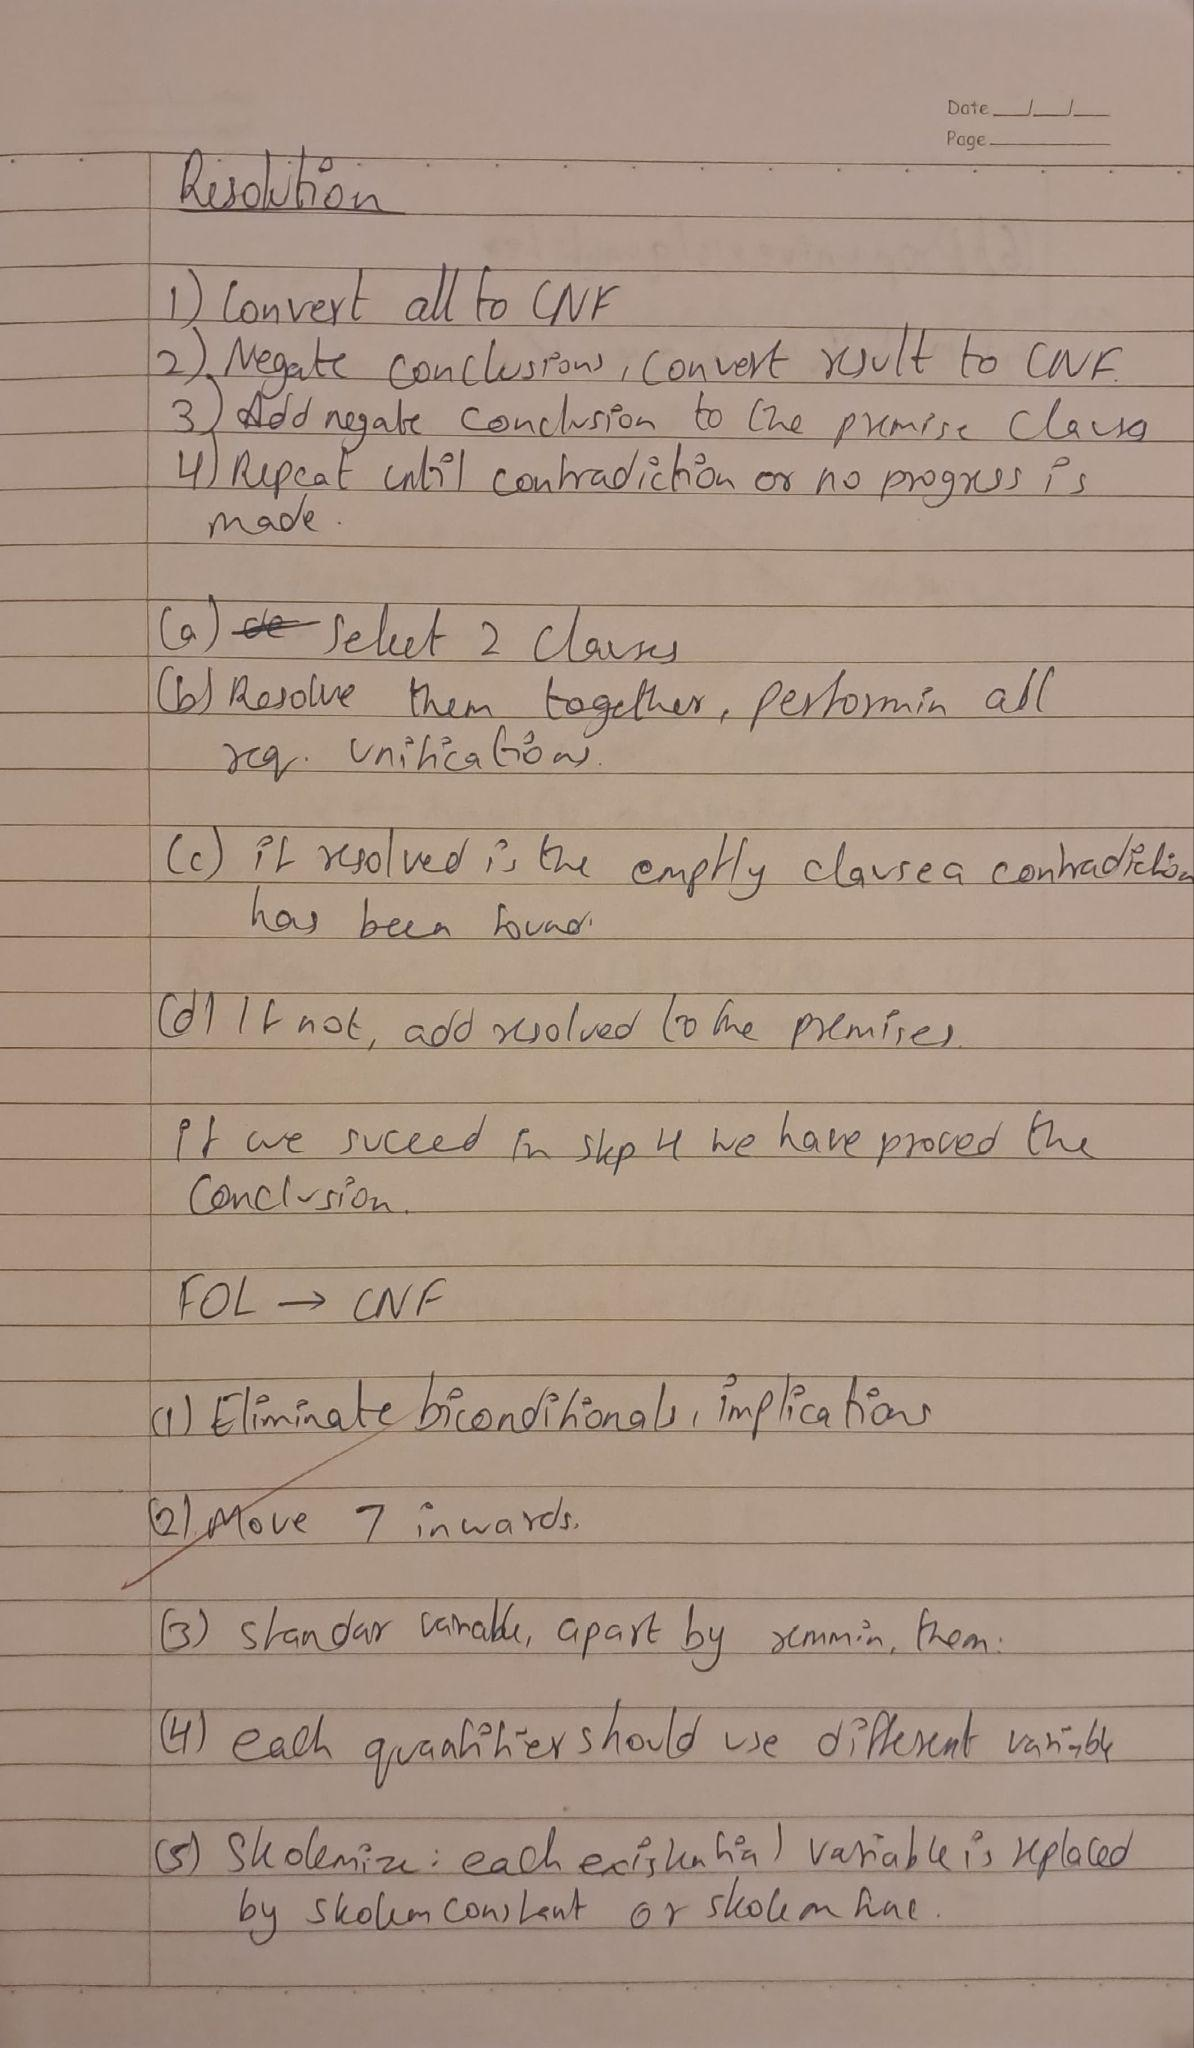 Date
Page
Resolution
1) Convert all to CNF
2) Negate conclusions, convert result to CNF.
3) Add negate conclusion to the premise clause
4) Repeat until contradiction or no progress is
made.
(a) select 2 clauses
(b) Resolve them together, performin all
req. unifications.
(c) if resolved is the emptly clause a contradiction
has been found.
(d) If not, add resolved to the premises.
if we suceed in step 4 we have proved the
conclusion.
FOL → CNF
(1) Eliminate biconditionals, implications
(2) Move ¬ inwards.
(3) standar variable, apart by them.
(4) each quantifier should use different variable
(5) Skolemize: each existential variable is replaced
by skolem constant or skolem func.